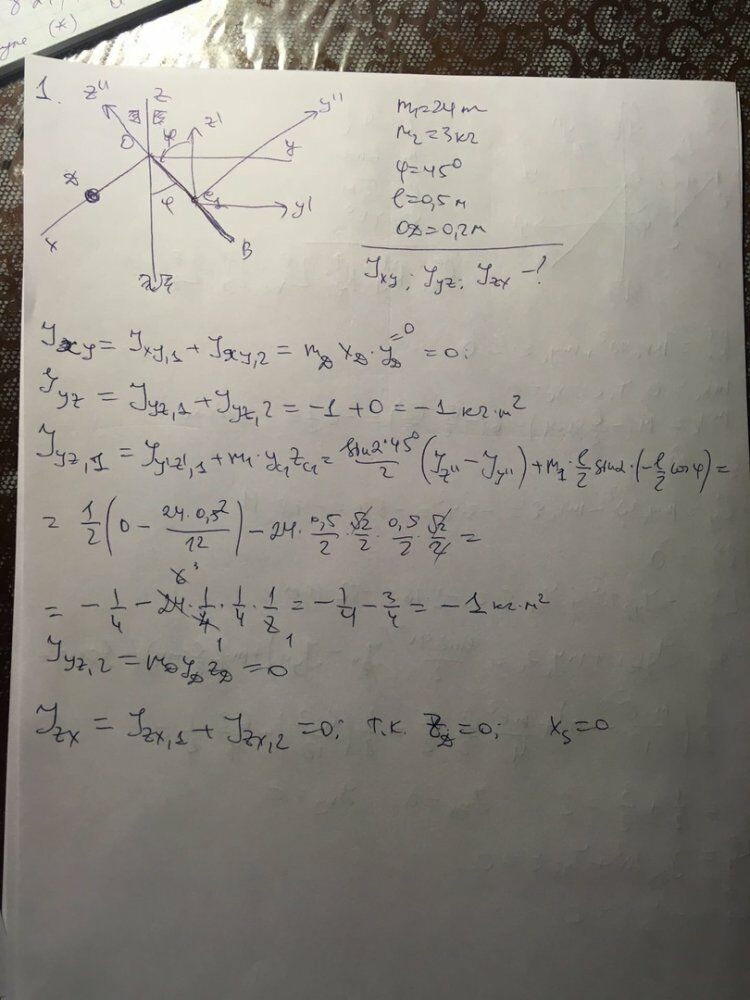 1.
z'' z y''
O φ z' y
D φ C₁ y'
x B
m₁=24 т
m₂=3 кг
φ=45°
l=0,5 м
OD=0,2 м
J_xy; J_yz; J_zx -?
J_xy = J_xy,1 + J_xy,2 = m_D x_D · y_D = 0; =0
J_yz = J_yz,1 + J_yz,2 = -1 + 0 = -1 кг·м²
J_yz,1 = J_y'z',1 + m₁·y_C₁ z_C₁ = sin2·45°/2 (J_z'' - J_y'') + m₁·l/2 sinα·(-l/2 cosφ) =
= 1/2 (0 - 24·0,5²/12) - 24·0,5/2·√2/2·0,5/2·√2/2 =
= -1/4 - 24·1/4·1/4·1/2 = -1/4 - 3/4 = -1 кг·м²
J_yz,2 = m_D y_D z_D = 0
J_zx = J_zx,1 + J_zx,2 = 0; т.к. z_D = 0; x_S = 0